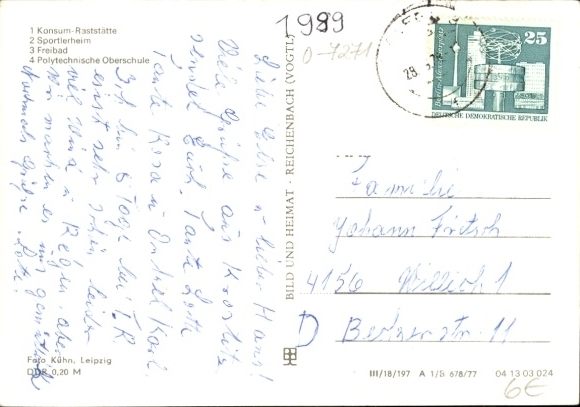 1 Konsum-Raststätte
2 Sportlerheim
3 Freibad
4 Polytechnische Oberschule
1989
0-7271
Liebe Else u. lieber Hans!
Viele Grüße aus Krostitz
sendet Euch Tante Lotte
Tante Rosa u. Onkel Karl.
Ich bin 8 Tage bei T. R
sehr schön leider
viel Wind u. Regen, aber
wir machen es uns gemütlich
Nochmals Grüße Lotte
Foto Kühn, Leipzig
DDR 0,20 M
BILD UND HEIMAT · REICHENBACH (VOGTL)
28
Berlin-Alexanderplatz
25
DEUTSCHE DEMOKRATISCHE REPUBLIK
Familie
Johann Fritsch
4156 Willich 1
D Berliner str. 11
III/18/197 A 1/B 678/77 04 13 03 024
6€